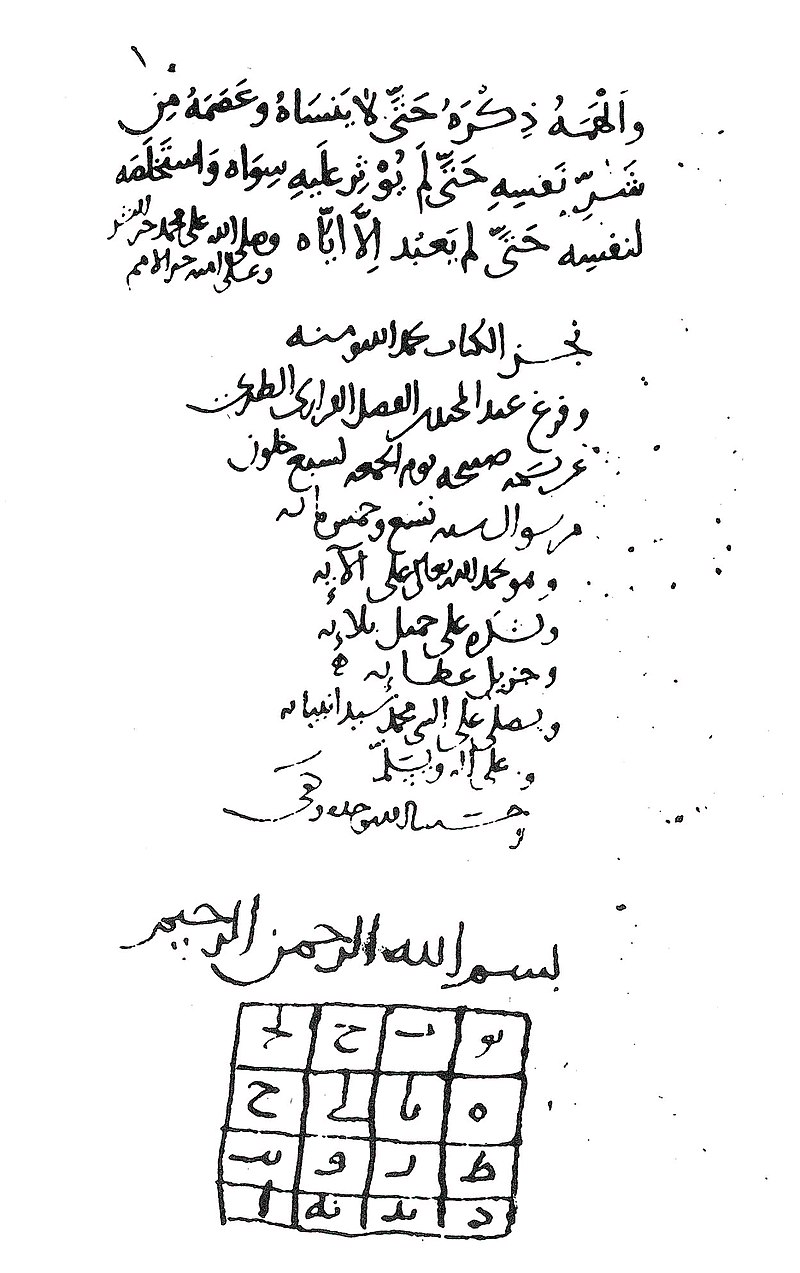 ١
وَأَلْهَمَهُ ذِكْرَهُ حَتَّى لا يَنسَاهُ وعَصَمَهُ مِن
شَرِّ نَفسِهِ حَتَّى لَم يُؤْثِر عَلَيهِ سِوَاه وَاستَخلَصَه
لنفسِه حَتَّى لم يَعبُد إِلَّا ايَّاه وصلى الله على محمد خير البشر
وعلى امته خير الامم
نجز الكتاب بحمد الله ومنه
وفرغ عبد الفضل الطبري
عن نسخه صبيحه يوم الجمعه لسبع خلون
من سوال سنه تسع وخمس مائه
وهو يحمد الله تعالى على آلائه
ويشكره على جميل بلائه
وجزيل عطائه
ويصلي على النبي محمد سيد انبيائه
وعلى آله ويسلّم
وحسبنا الله وحده وكفى
بسم الله الرحمن الرحيم
يو ب ح
ه يا ح
ط و
د يد يه ا